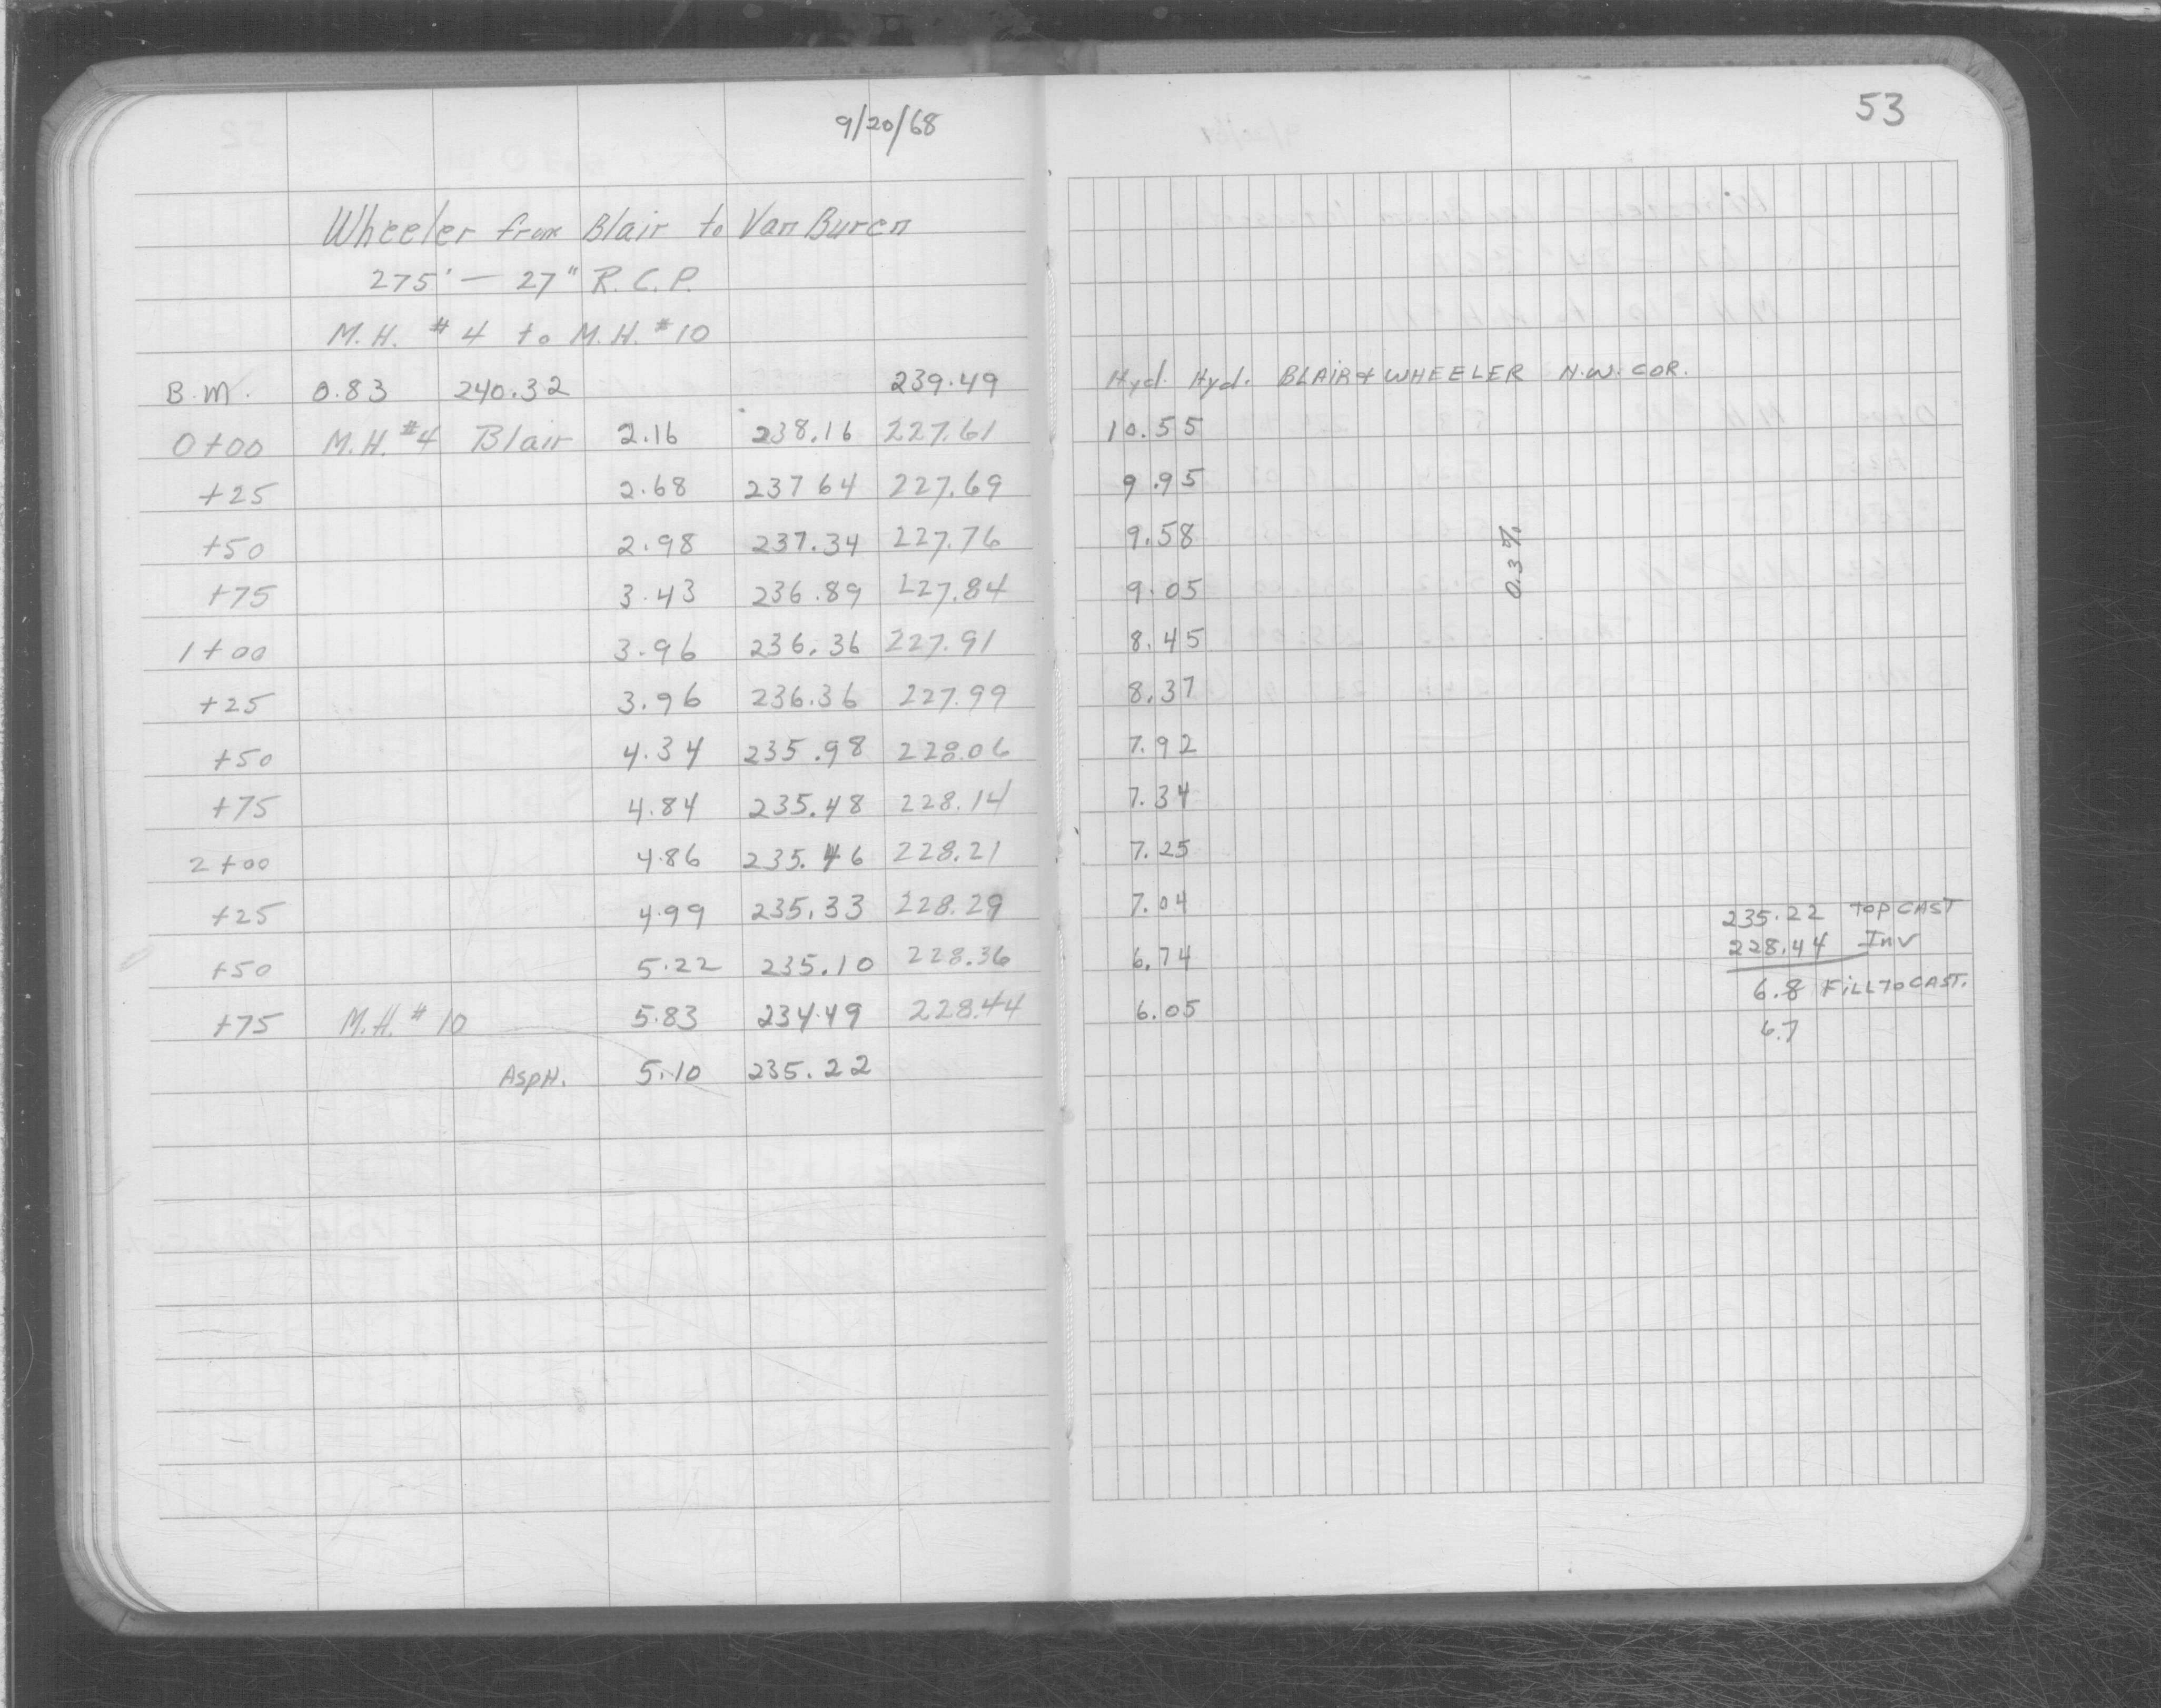 9/20/68
53
Wheeler from Blair to Van Buren
275' — 27" R.C.P.
M.H. #4 to M.H. #10
B.M. 0.83 240.32 239.49 Hyd. Hyd. BLAIR & WHEELER N.W. COR.
0+00 M.H. #4 Blair 2.16 238.16 227.61 10.55
+25 2.68 237 64 227.69 9.95
+50 2.98 237.34 227.76 9.58
0.3%
+75 3.43 236.89 227.84 9.05
1+00 3.96 236.36 227.91 8.45
+25 3.96 236.36 227.99 8.37
+50 4.34 235.98 228.06 7.92
+75 4.84 235.48 228.14 7.34
2+00 4.86 235.46 228.21 7.25
+25 4.99 235.33 228.29 7.04
235.22 TOP CAST
+50 5.22 235.10 228.36 6.74
228.44 Inv
6.8 FILL TO CAST.
+75 M.H. #10 5.83 234.49 228.44 6.05
6.7
ASPH. 5.10 235.22